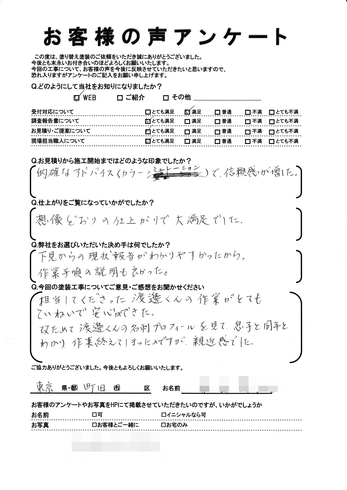 お客様の声アンケート
この度は、塗り替え塗装のご依頼をいただき誠にありがとうございました。
今後とも末永いお付き合いのほどよろしくお願いいたします。
今回の工事について、お客様の声を今後に反映させていただきたいと思いますので、
恐れ入りますがアンケートのご記入をお願い申し上げます。
Q.どのようにして当社をお知りになりましたか？
☑ WEB □ ご紹介 □ その他
受付対応について □とても満足 ☑満足 □普通 □不満 □とても不満
調査報告書について ☑とても満足 □満足 □普通 □不満 □とても不満
お見積り・ご提案について ☑とても満足 □満足 □普通 □不満 □とても不満
現場担当職人について ☑とても満足 □満足 □普通 □不満 □とても不満
Q.お見積りから施工開始まではどのような印象でしたか？
的確なアドバイス(カラーシミュレーション)で、信頼感が増した。
Q.仕上がりをご覧になっていかがでしたか？
想像どおりの仕上がりで大満足でした。
Q.弊社をお選びいただいた決め手は何でしたか？
下見からの現状報告がわかりやすかったから。
作業手順の説明も良かった。
Q.今回の塗装工事についてご意見・ご感想をお聞かせください
担当してくださった渡邉くんの作業がとても
ていねいで安心できた。
改ためて渡邉くんの名刺プロフィールを見て、息子と同年と
わかり、作業終えてしまったのですが、親近感でした。
ご協力ありがとうございました。今後ともよろしくお願いいたします。
東京 県・都 町田 市 区 お名前
お客様のアンケートやお写真をHPにて掲載させていただきたいのですが、いかがでしょうか
お名前 □可 □イニシャルなら可
お写真 □お客様とご一緒に □お宅のみ